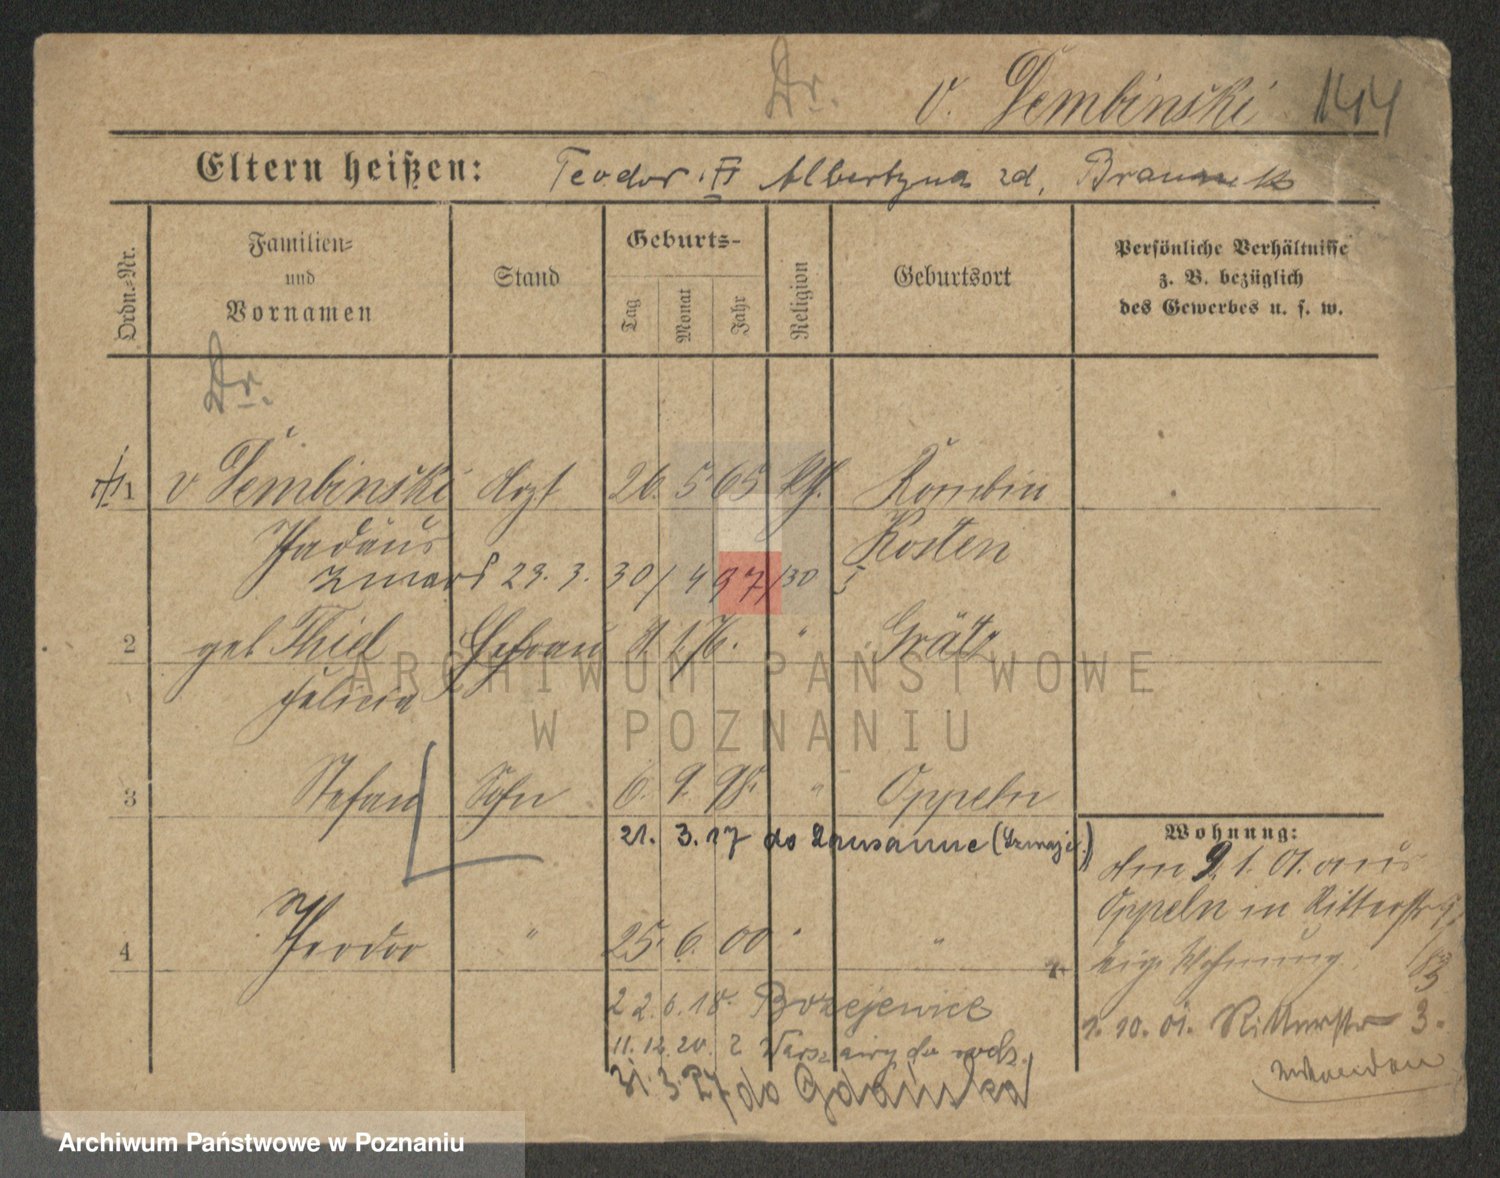 Dr. v. Dembinski 144
Eltern heißen: Teodor i Albertyna zd.
Ordn.-Nr.
Familien-
und
Vornamen
Stand
Geburts-
Tag
Monat
Jahr
Religion
Geburtsort
Persönliche Verhältnisse
z. B. bezüglich
des Gewerbes u. s. w.
Dr.
1 v Dembinski Arzt 26. 5 65 Kth.
Thadäus Kosten
zmarł 29. 3. 30
2 geb Thiel Ehefrau 1. 76. " Grätz
Felicia
3 Stefan Sohn 6. 9. 98. " Oppeln
21. 3. 17 do Lausanne
Wohnung:
Am 9. 1. 01. aus
Oppeln in Ritterstr 9
4 Theodor " 25. 6. 00 " "
eig. Wohnung
22. 6. 18.
1. 10. 01. Ritterstr 3.
11. 12. 20. z
31. 3. 27 do Gdańska
ARCHIWUM PAŃSTWOWE
W POZNANIU
Archiwum Państwowe w Poznaniu